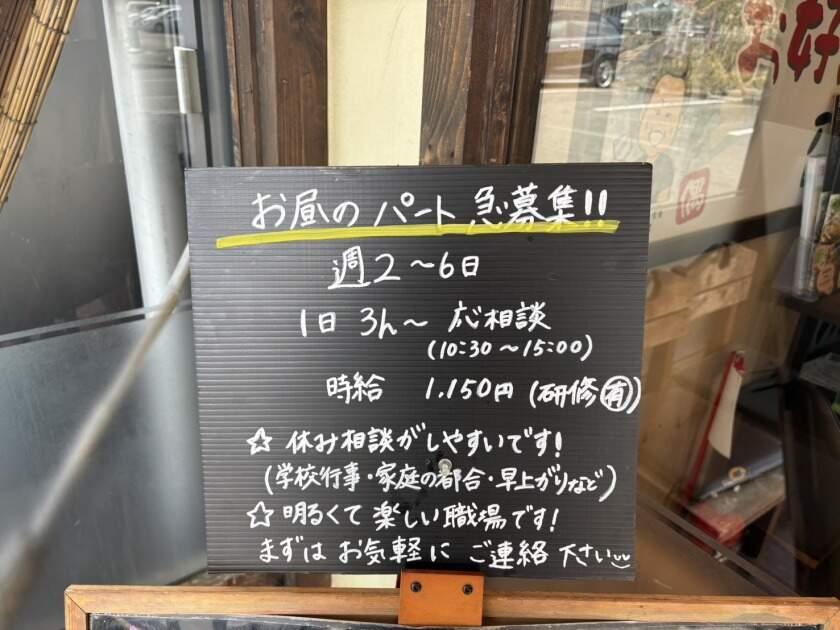 お好
偶
お昼のパート急募集!!
週2～6日
1日 3h～ 応相談
(10:30～15:00)
時給 1,150円 (研修㊒)
☆ 休み相談がしやすいです!
(学校行事・家庭の都合・早上がりなど)
☆ 明るくて楽しい職場です!
まずは お気軽に ご連絡 下さい